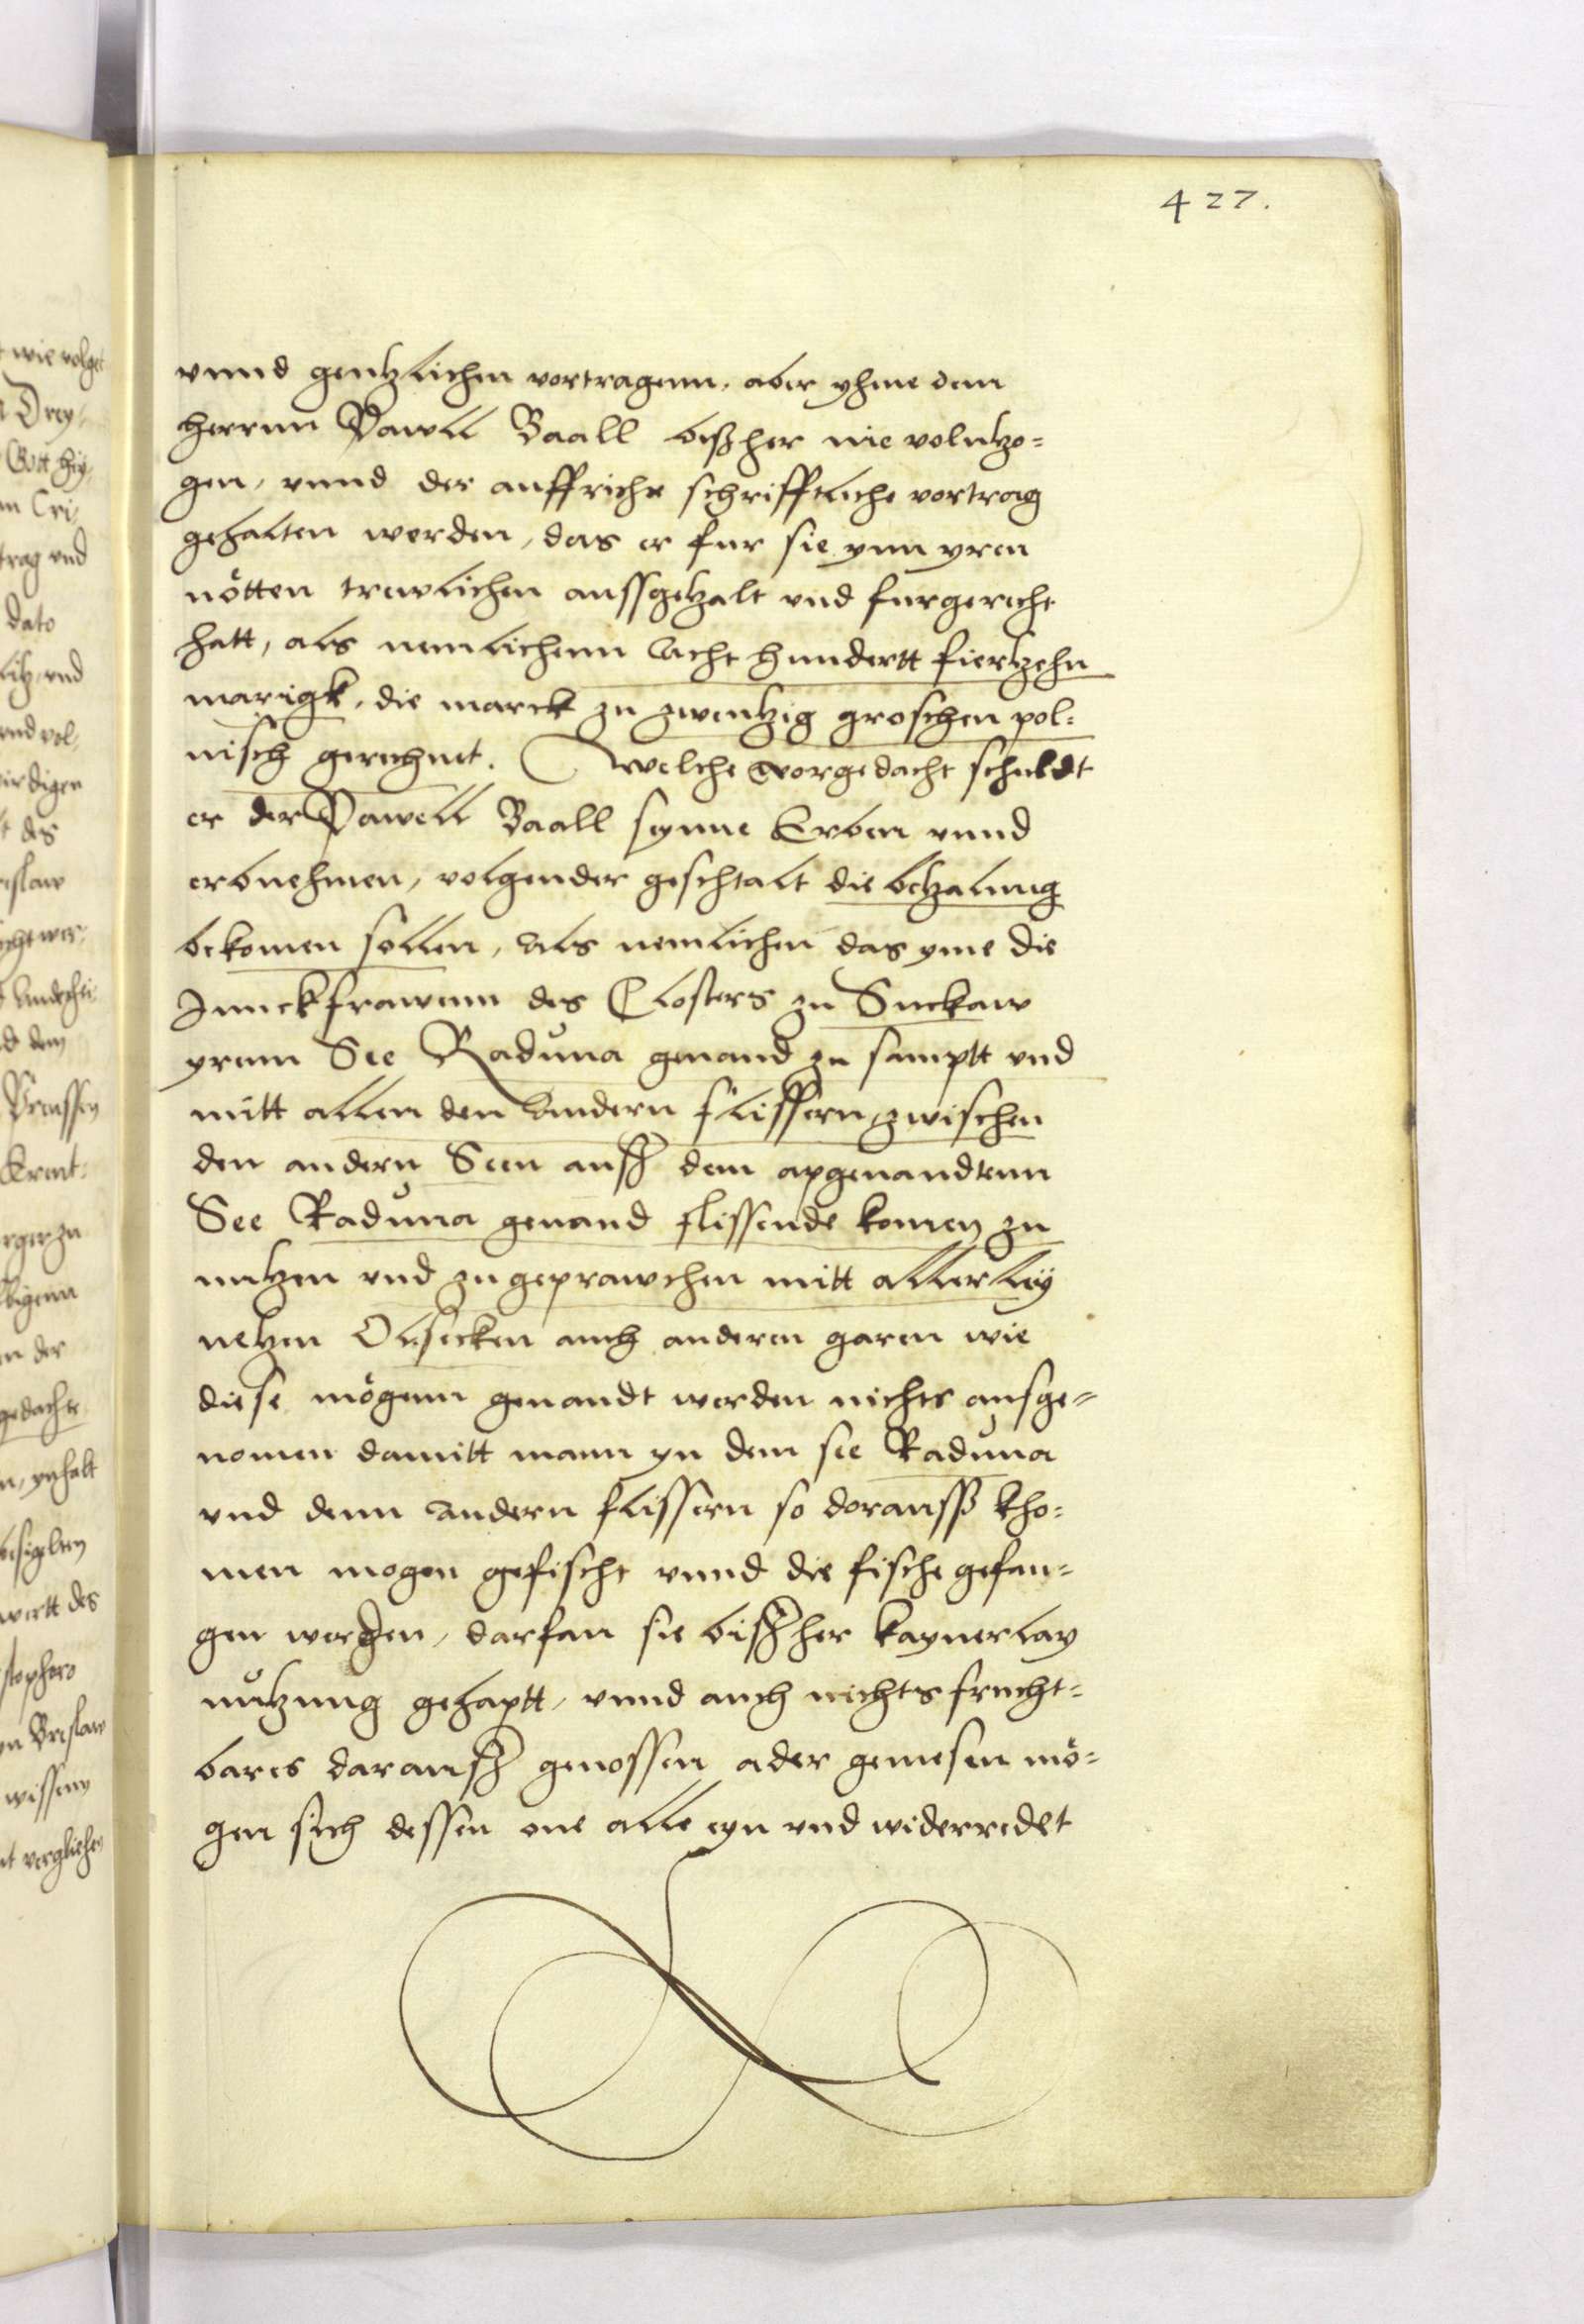 427.
vnnd gentzlichen vortragenn, aber yhme dem
herrnn Pawll Baall bißher nie volntzo=
gen, vnnd der auffricht schrifftliche vortrag
gehalten werden, das er fur sie ynn yren
nötten trewlichen aussgetzalt vnd furgericht
hatt, als nemlichenn Acht hundertt fiertzehn
marigk, die marck zu zwentzig groschen pol=
nisch gerechnet. Welche vorgedacht schuldt
er der Pawell Baall seynne Erben vnnd
erbnehmen, volgender geschtalt die betzalung
bekomen sollen, Als nemlichen das yme die
Junckfrawenn des Closters zu Suckaw
yrenn See Raduna genand zu samptt vnd
mitt allen den Andern flissern zwischen
den andern Seen auß dem apgenandtenn
See Raduna genand flissende komen zu
nutzen vnd zugeprawchen mitt allerley
netzen Olsecken auch anderen garen wie
diese mögenn genandt werden nichts ausge=
nomen damitt mann yn dem see Raduna
vnd denn Andern flissern so dorauss kho=
men mogen gefischt vnnd die fische gefan=
gen werden, darfan sie bißher kaynerlay
nutzung gehaptt, vnnd auch nichts frucht=
bares darauß genossen ader geniesen mö=
gen sich dessen one alle eyn vnd widerredt
wie volget
Drey
Gott
Cri
trag vnd
dato
vnd
vnd vol
wirdigen
des
dem
Preussen
der
gedachte
ynhalt
des
Breslaw
wissenn